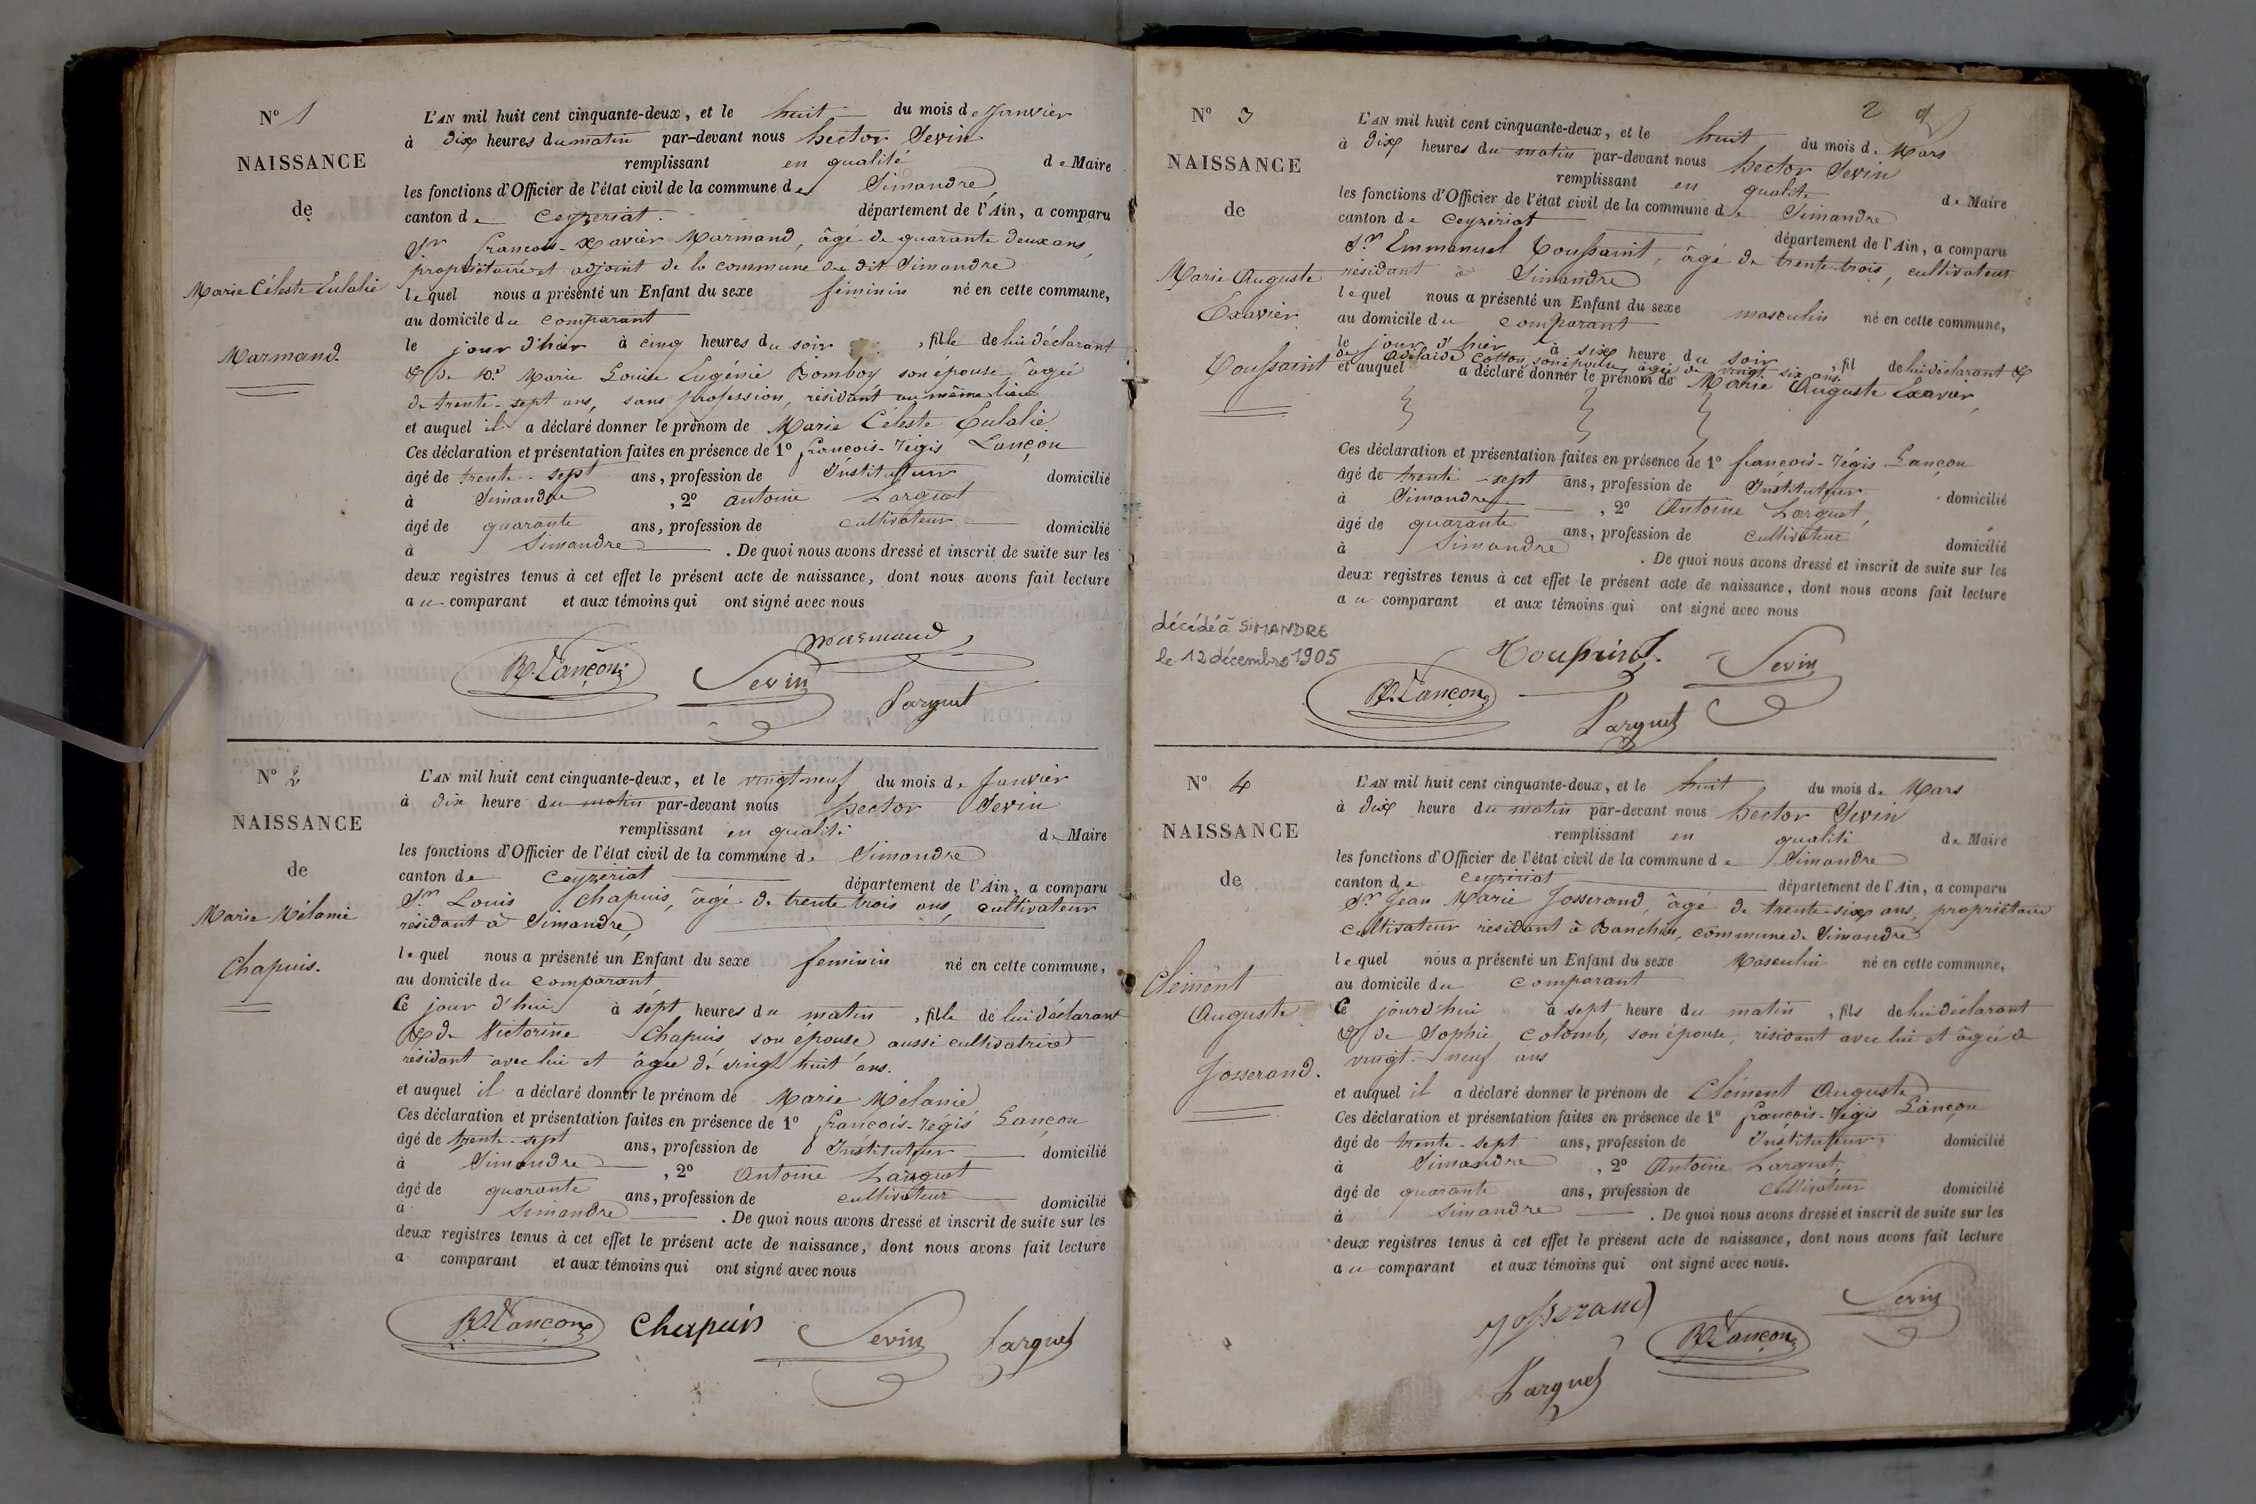 N° 1
NAISSANCE
de
Marie Céleste Eulalie
Marmand.
L'AN mil huit cent cinquante-deux, et le huit du mois de Janvier
à dix heures du matin par-devant nous hector Sevin
remplissant en qualité de Maire
les fonctions d'Officier de l'état civil de la commune de Simandre
canton de Ceyzeriat. département de l'Ain, a comparu
Sr francois-Xavier Marmand, âgé de quarante deux ans,
propriétaire et adjoint de la commune du dit Simandre
lequel nous a présenté un Enfant du sexe féminin né en cette commune,
au domicile du comparant
le jour d'hier à cinq heures du soir , fille de lui déclarant
& de De Marie Louise Eugénie Bomboy son épouse, âgée
de trente-sept ans, sans profession, résidant au même lieu
et auquel il a déclaré donner le prénom de Marie Céleste Eulalie
Ces déclaration et présentation faites en présence de 1° francois-régis Lançon
âgé de trente-sept ans, profession de Instituteur domicilié
à Simandre , 2° antoine Larguet
âgé de quarante ans, profession de cultivateur domicilié
à Simandre . De quoi nous avons dressé et inscrit de suite sur les
deux registres tenus à cet effet le présent acte de naissance, dont nous avons fait lecture
au comparant et aux témoins qui ont signé avec nous
marmand
R. Lançon Sevin
Larguet
N° 2
NAISSANCE
de
Marie Mélanie
Chapuis.
L'AN mil huit cent cinquante-deux, et le vingt neuf du mois de Janvier
à dix heure du matin par-devant nous hector Sevin
remplissant en qualité de Maire
les fonctions d'Officier de l'état civil de la commune de Simandre
canton de Ceyzeriat département de l'Ain, a comparu
Sr Louis Chapuis, âgé de trente trois ans, cultivateur
résidant à Simandre,
lequel nous a présenté un Enfant du sexe feminin né en cette commune,
au domicile du comparant
Ce jour d'hui à sept heures du matin , fille de lui déclarant
& de Victorine Chapuis son épouse aussi cultivatrice
résidant avec lui et âgée de vingt huit ans.
et auquel il a déclaré donner le prénom de Marie Mélanie
Ces déclaration et présentation faites en présence de 1° francois-régis Lançon
âgé de trente-sept ans, profession de Instituteur domicilié
à Simandre , 2° Antoine Larguet
âgé de quarante ans, profession de cultivateur domicilié
à Simandre . De quoi nous avons dressé et inscrit de suite sur les
deux registres tenus à cet effet le présent acte de naissance, dont nous avons fait lecture
a comparant et aux témoins qui ont signé avec nous
R. Lançon Chapuis Sevin Larguet
2
N° 3
NAISSANCE
de
Marie Auguste
Exavier
Toussaint
L'AN mil huit cent cinquante-deux, et le huit du mois de Mars
à dix heures du matin par-devant nous hector Sevin
remplissant en qualité de Maire
les fonctions d'Officier de l'état civil de la commune de Simandre
canton de Ceyzériat département de l'Ain, a comparu
Sr Emmanuel Toussaint, âgé de trente-trois, cultivateur
résidant à Simandre
lequel nous a présenté un Enfant du sexe masculin né en cette commune,
au domicile du comparant
le jour d'hier à six heure du soir , fil de lui déclarant &
de Adélaide Cotton, son épouse, âgée de vingt six ans.
et auquel a déclaré donner le prénom de Marie Auguste Exavier,
Ces déclaration et présentation faites en présence de 1° francois-régis Lançon
âgé de trente-sept ans, profession de Instituteur domicilié
à Simandre , 2° Antoine Larguet,
âgé de quarante ans, profession de cultivateur domicilié
à Simandre . De quoi nous avons dressé et inscrit de suite sur les
deux registres tenus à cet effet le présent acte de naissance, dont nous avons fait lecture
au comparant et aux témoins qui ont signé avec nous
décédé à SIMANDRE
le 12 décembre 1905
Toussaint. Sevin
R. Lançon
Larguet
N° 4
NAISSANCE
de
Clément
Auguste
Josserand.
L'AN mil huit cent cinquante-deux, et le huit du mois de Mars
à dix heure du matin par-devant nous hector Sevin
remplissant en qualité de Maire
les fonctions d'Officier de l'état civil de la commune de Simandre
canton de Ceyzériat département de l'Ain, a comparu
Sr Jean Marie Josserand, âgé de trente-six ans, propriétaire
cultivateur résidant à Banchin, commune de Simandre
lequel nous a présenté un Enfant du sexe Masculin né en cette commune,
au domicile du comparant
Ce jourd'hui à sept heure du matin , fils de lui déclarant
& de Sophie Colomb, son épouse, résidant avec lui et âgée de
vingt-neuf ans
et auquel il a déclaré donner le prénom de Clément Auguste
Ces déclaration et présentation faites en présence de 1° francois-régis Lançon
âgé de trente-sept ans, profession de Instituteur domicilié
à Simandre , 2° Antoine Larguet,
âgé de quarante ans, profession de Cultivateur domicilié
à Simandre . De quoi nous avons dressé et inscrit de suite sur les
deux registres tenus à cet effet le présent acte de naissance, dont nous avons fait lecture
au comparant et aux témoins qui ont signé avec nous.
Josserand Sevin
R. Lançon
Larguet